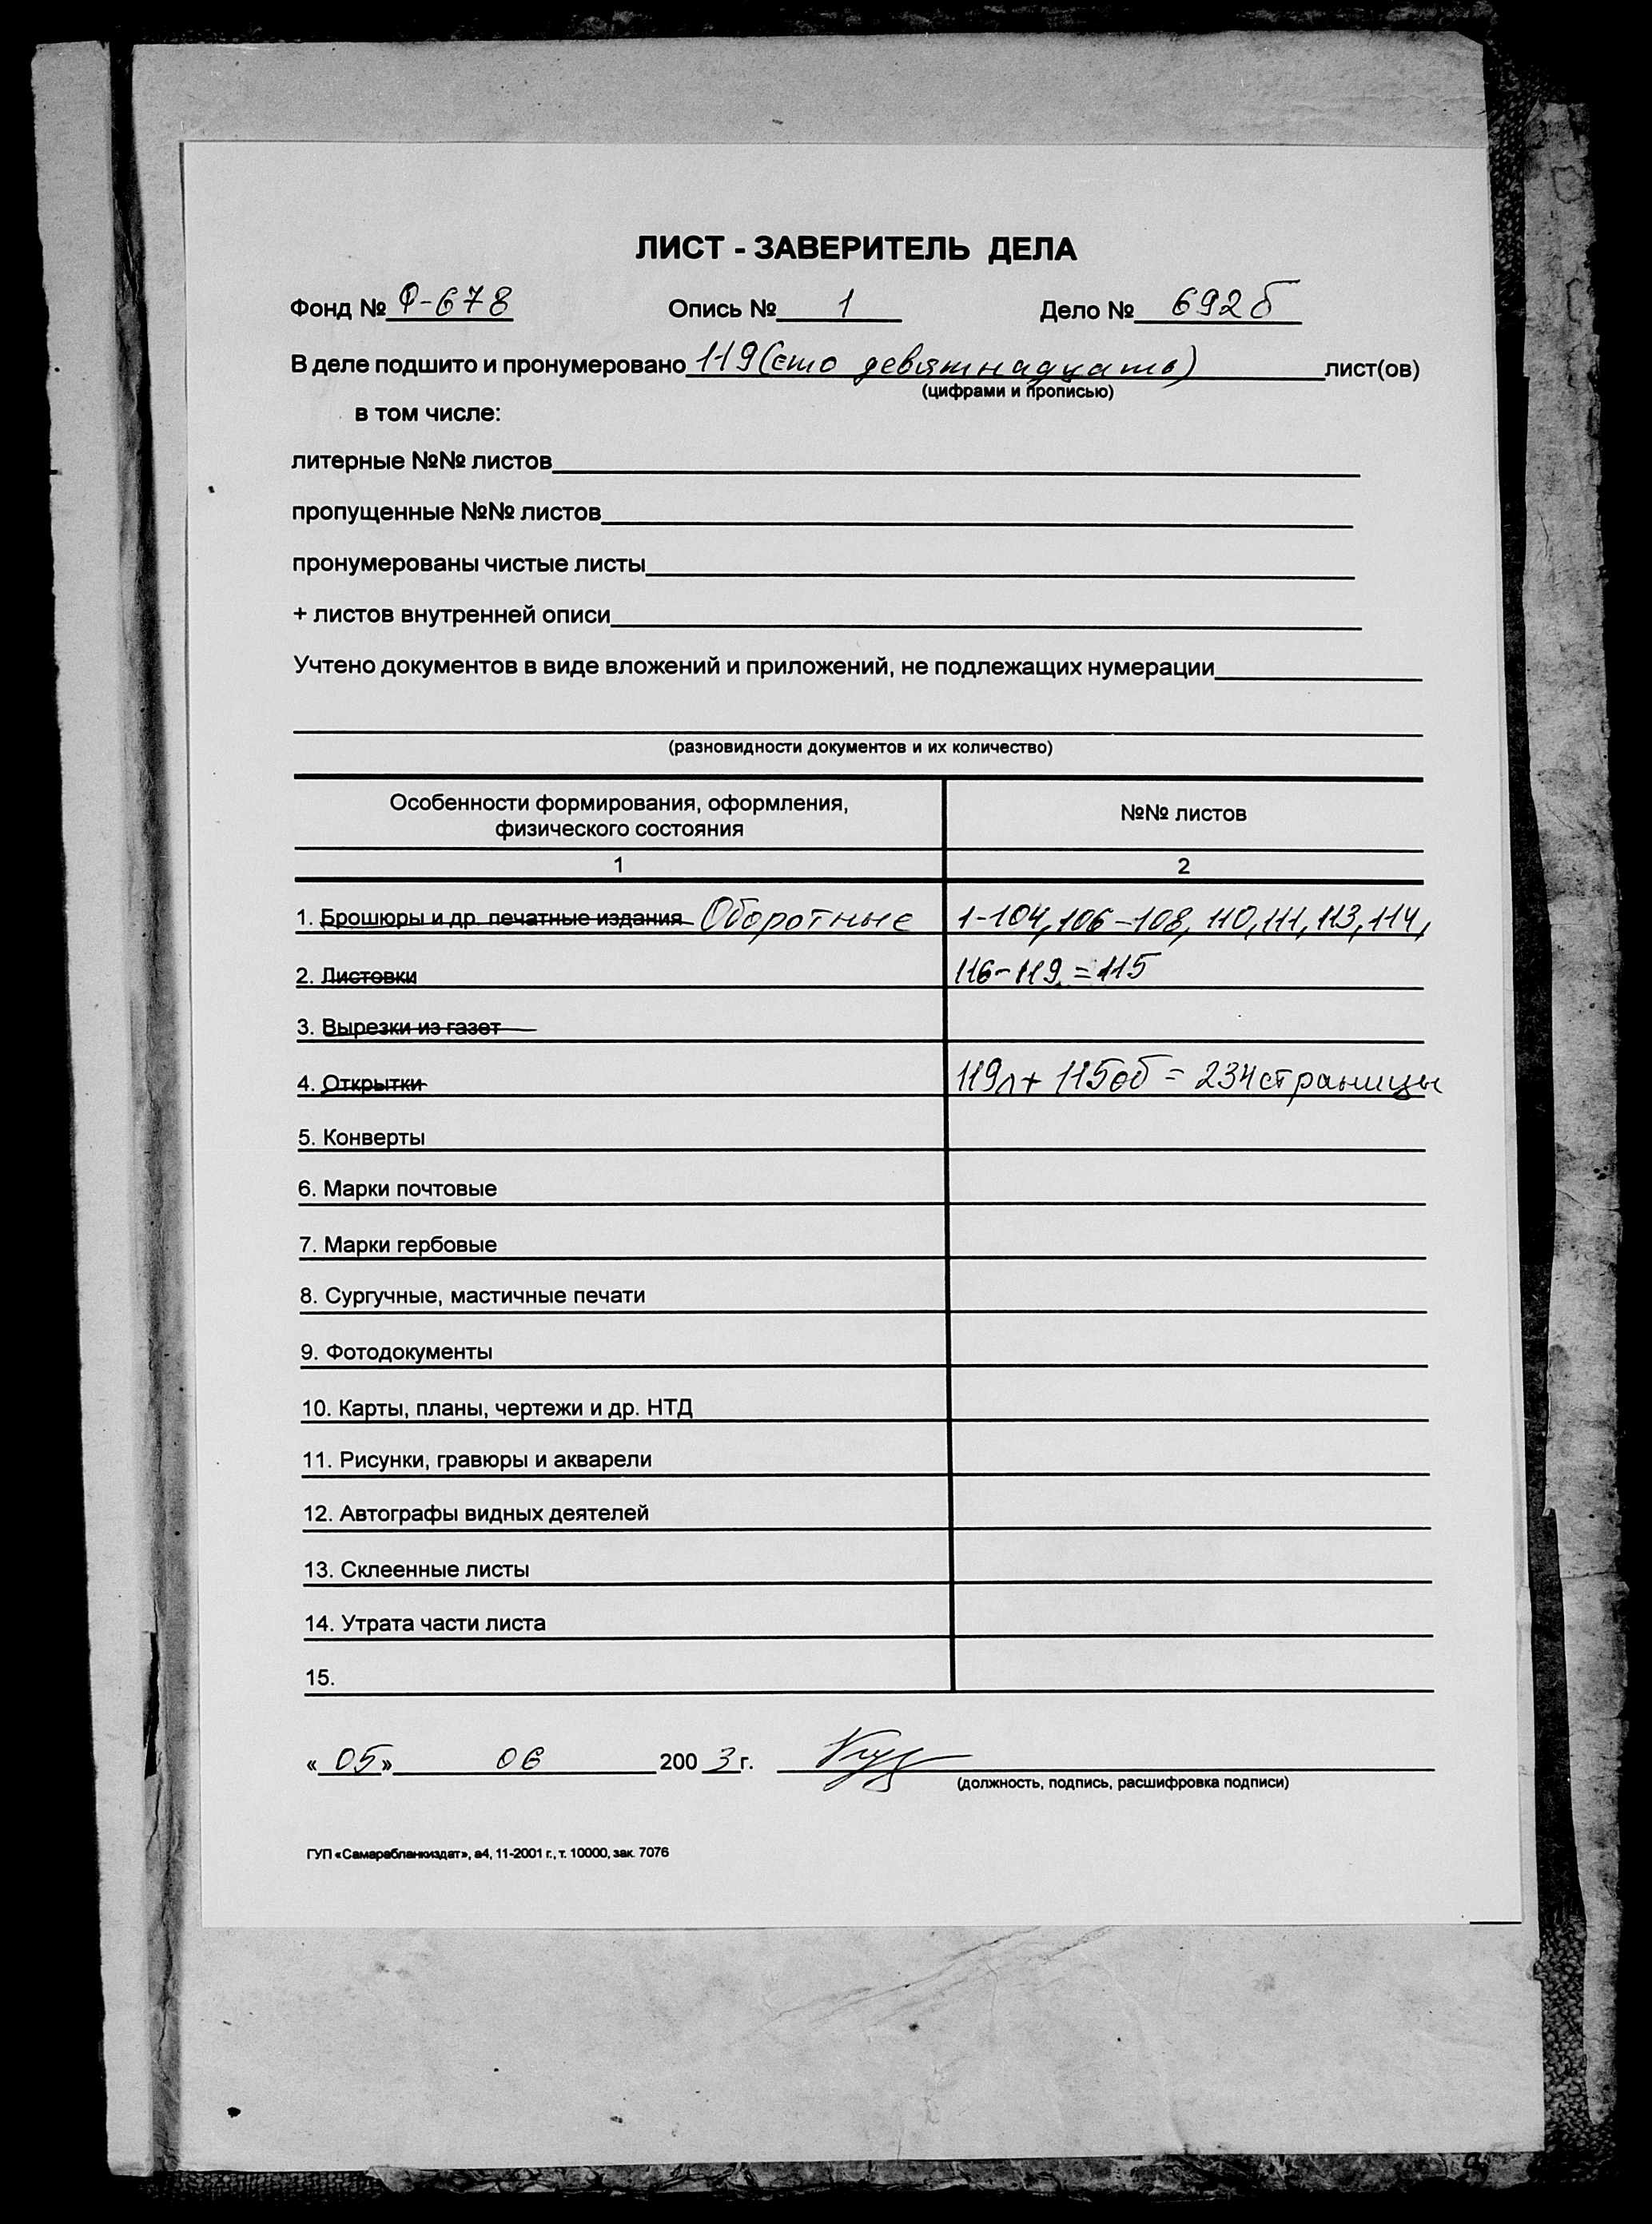 ЛИСТ - ЗАВЕРИТЕЛЬ ДЕЛА
Фонд № Ф-678 Опись № 1 Дело № 692б
В деле подшито и пронумеровано 119 (сто девятнадцать) лист(ов)
(цифрами и прописью)
в том числе:
литерные №№ листов
пропущенные №№ листов
пронумерованы чистые листы
+ листов внутренней описи
Учтено документов в виде вложений и приложений, не подлежащих нумерации
(разновидности документов и их количество)
Особенности формирования, оформления, №№ листов
физического состояния
1 2
1. Брошюры и др. печатные издания Оборотные 1-104, 106-108, 110, 111, 113, 114,
2. Листовки 116-119 = 115
3. Вырезки из газет
4. Открытки 119л + 115об = 234 страницы
5. Конверты
6. Марки почтовые
7. Марки гербовые
8. Сургучные, мастичные печати
9. Фотодокументы
10. Карты, планы, чертежи и др. НТД
11. Рисунки, гравюры и акварели
12. Автографы видных деятелей
13. Склеенные листы
14. Утрата части листа
15.
«05» 06 2003 г.
(должность, подпись, расшифровка подписи)
ГУП «Самарабланкиздат», а4, 11-2001 г., т. 10000, зак. 7076